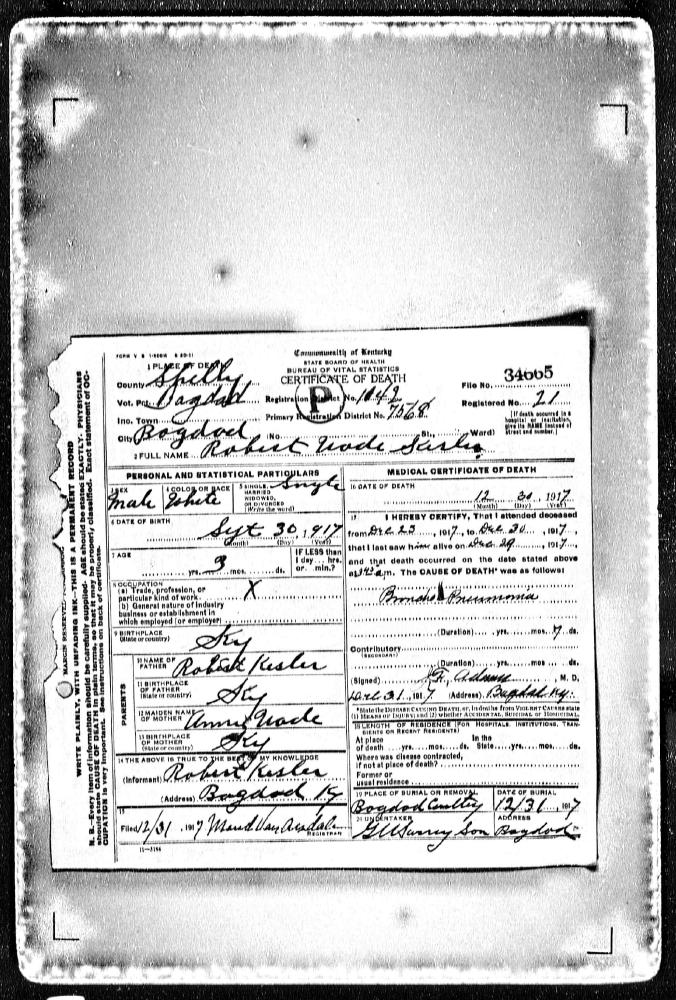 FORM V S 1-500M 8 23-11
Commonwealth of Kentucky
STATE BOARD OF HEALTH
BUREAU OF VITAL STATISTICS
CERTIFICATE OF DEATH
1 PLACE OF DEATH
County Shelby
Vot. Pct. Bagdad
Inc. Town
City Bagdad (No. St., Ward)
Registration District No. 1042
Primary Registration District No. 7568
P
File No. 34665
Registered No. 21
[If death occurred in a hospital or institution, give its NAME instead of street and number.]
2 FULL NAME Robert Wade Kesler
PERSONAL AND STATISTICAL PARTICULARS
3 SEX Male
4 COLOR OR RACE White
5 SINGLE, MARRIED WIDOWED, OR DIVORCED (Write the word) Single
6 DATE OF BIRTH
Sept 30, 1917
(Month) (Day) (Year)
7 AGE
yrs. 3 mos. ds.
IF LESS than 1 day... hrs. or min.?
8 OCCUPATION
(a) Trade, profession, or particular kind of work X
(b) General nature of industry business or establishment in which employed (or employer)
9 BIRTHPLACE (State or country) Ky
PARENTS
10 NAME OF FATHER Robert Kesler
11 BIRTHPLACE OF FATHER (State or country) Ky
12 MAIDEN NAME OF MOTHER Annie Wade
13 BIRTHPLACE OF MOTHER (State or country) Ky
14 THE ABOVE IS TRUE TO THE BEST OF MY KNOWLEDGE
(Informant) Robert Kesler
(Address) Bagdad Ky
15
Filed 12/31, 1917 Maud Van Arsdale REGISTRAR
11-3184
MEDICAL CERTIFICATE OF DEATH
16 DATE OF DEATH
12 30, 1917
(Month) (Day) (Year)
17 I HEREBY CERTIFY, That I attended deceased
from Dec 23, 1917, to Dec 30, 1917,
that I last saw him alive on Dec 29, 1917,
and that death occurred on the date stated above
at m. The CAUSE OF DEATH* was as follows:
Broncho Pneumonia
(Duration) yrs. mos. 7 ds.
Contributory
(SECONDARY)
(Duration) yrs. mos. ds.
(Signed) Adams, M. D.
Dec 31, 1917 (Address) Bagdad Ky.
*State the DISEASE CAUSING DEATH, or, in deaths from VIOLENT CAUSES state
(1) MEANS OF INJURY; and (2) whether ACCIDENTAL, SUICIDAL or HOMICIDAL.
18 LENGTH OF RESIDENCE (FOR HOSPITALS, INSTITUTIONS, TRANSIENTS OR RECENT RESIDENTS)
At place of death yrs. mos. ds. In the State yrs. mos. ds.
Where was disease contracted, if not at place of death?
Former or usual residence
19 PLACE OF BURIAL OR REMOVAL Bagdad
DATE OF BURIAL 12/31, 1917
20 UNDERTAKER Son
ADDRESS Bagdad
MARGIN RESERVED
WRITE PLAINLY, WITH UNFADING INK. THIS IS A PERMANENT RECORD
N. B.—Every item of information should be carefully supplied. AGE should be stated EXACTLY. PHYSICIANS
should state CAUSE OF DEATH in plain terms, so that it may be properly classified. Exact statement of OC-
CUPATION is very important. See instructions on back of certificate.